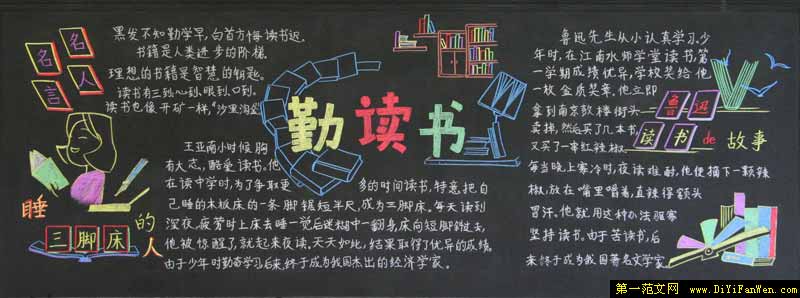 名人名言
黑发不知勤学早,白首方悔读书迟。
书籍是人类进步的阶梯。
理想的书籍是智慧的钥匙。
读书有三到:心到、眼到、口到。
读书也像开矿一样,“沙里淘金”
勤读书
睡三脚床的人
王亚南小时候胸
有大志,酷爱读书。他
在读中学时,为了争取更多的时间读书,特意把自
己睡的木板床的一条脚锯短半尺,成为三脚床。每天读到
深夜,疲劳时上床去睡一觉后迷糊中一翻身,床向短脚倒去,
他被惊醒了,就起来夜读。天天如此,结果取得了优异的成绩。
由于少年时勤奋学习后来,终于成为我国杰出的经济学家。
鲁迅读书de故事
鲁迅先生从小认真学习。少
年时,在江南水师学堂读书,第
一学期成绩优异,学校奖给他
一枚金质奖章。他立即
拿到南京鼓楼街头
卖掉,然后买了几本书,
又买了一串红辣椒。
每当晚上寒冷时,夜读难耐,他便摘下一颗辣
椒,放在嘴里嚼着,直辣得额头
冒汗。他就用这种办法驱寒
坚持读书。由于苦读书,后
来终于成为我国著名文学家。
第一范文网 www.DiYiFanWen.com